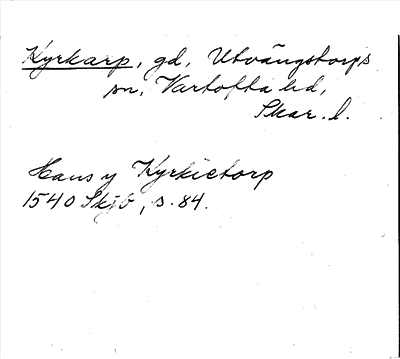 Kyrkarp, gd, Utvängstorps
sn, Vartofta hd,
Skar. l.
Hans y Kyrkietorp
1540 Skjb, s. 84.